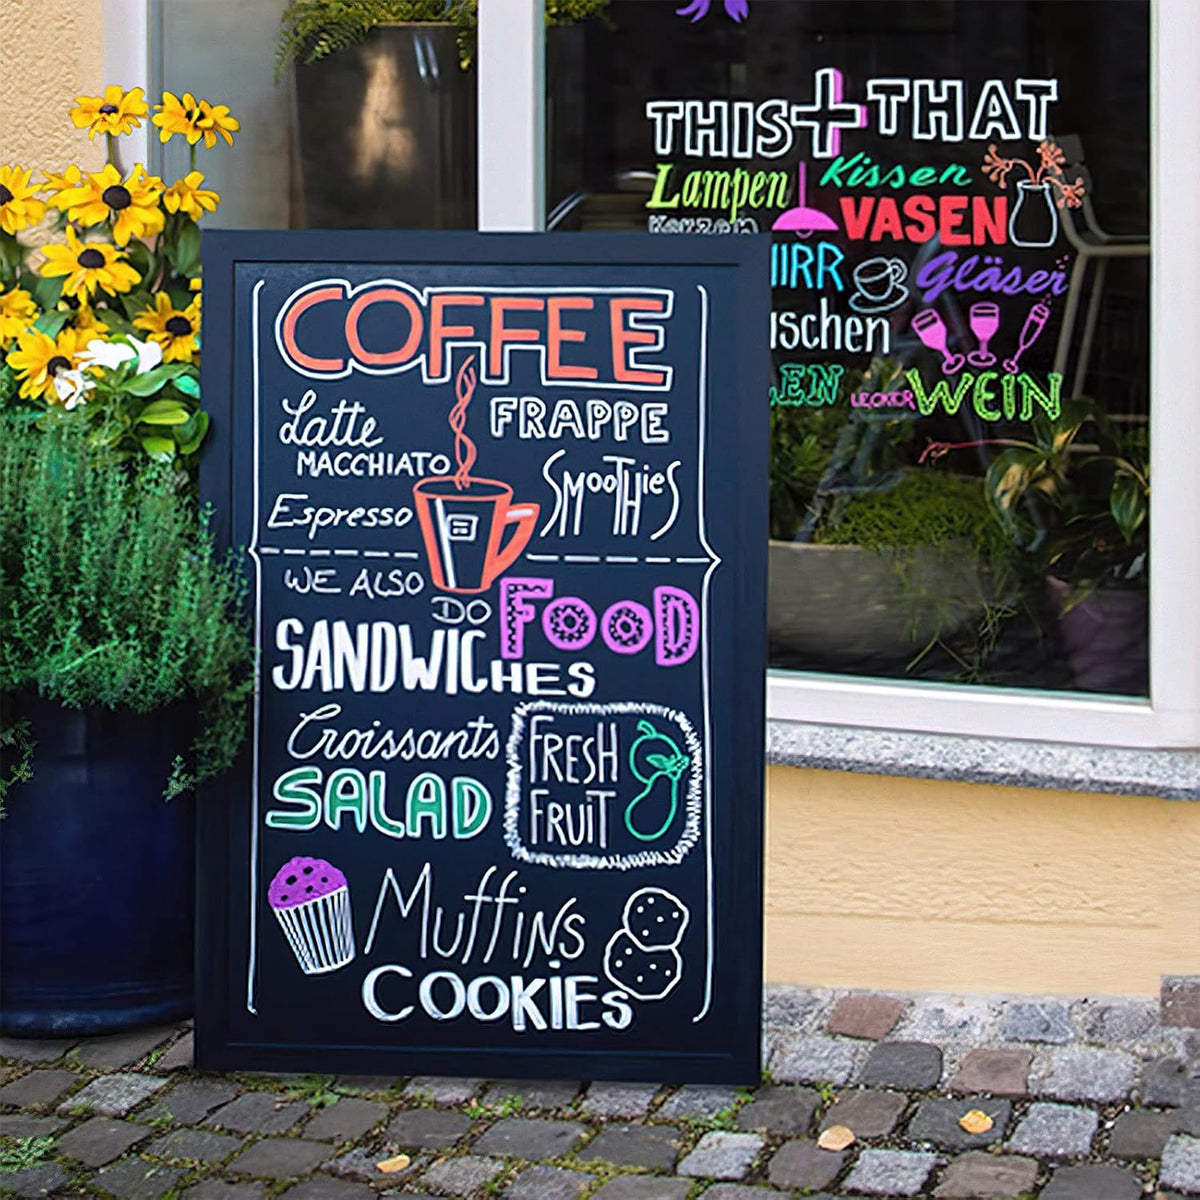 COFFEE
Latte
MACCHIATO
FRAPPE
Espresso
SMOOTHIES
WE ALSO
DO FOOD
SANDWICHES
Croissants
SALAD
FRESH
FRUIT
Muffins
COOKIES
THIS + THAT
Lampen Kissen
Kerzen VASEN
IRR Gläser
schen
EN LECKER WEIN